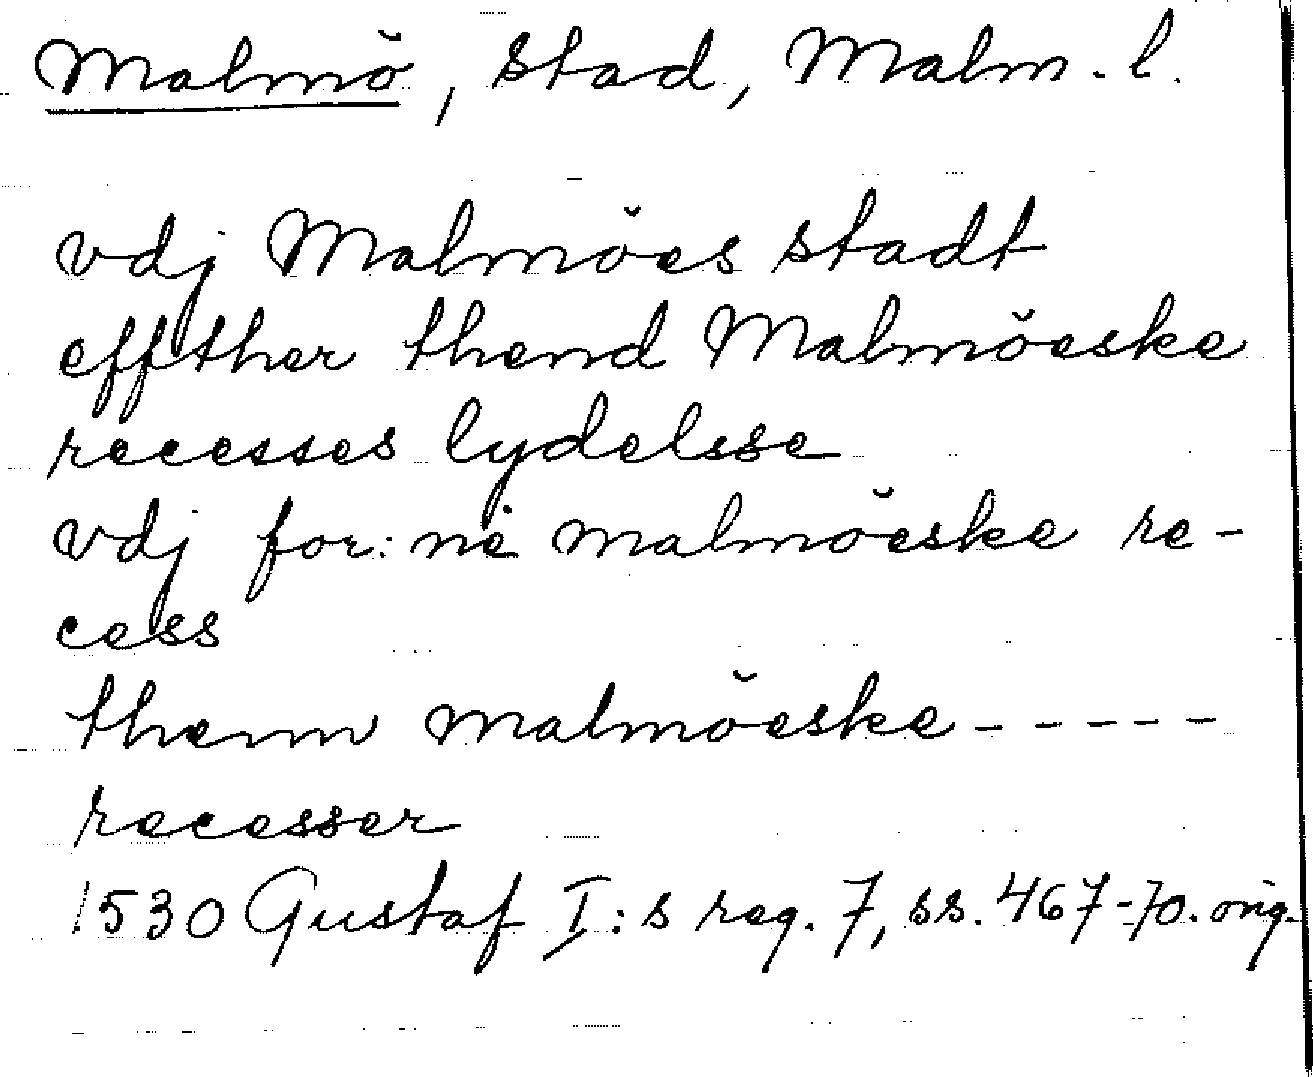 Malmö, Stad, Malm. l.
vdj Malmöes stadt
effther thend Malmöeske
recesses lydelsse
vdj for: ne malmöeske re-
cess
them malmöeske - - - - -
recesser
1530 Gustaf I:s reg. 7, ss. 467-70. orig.